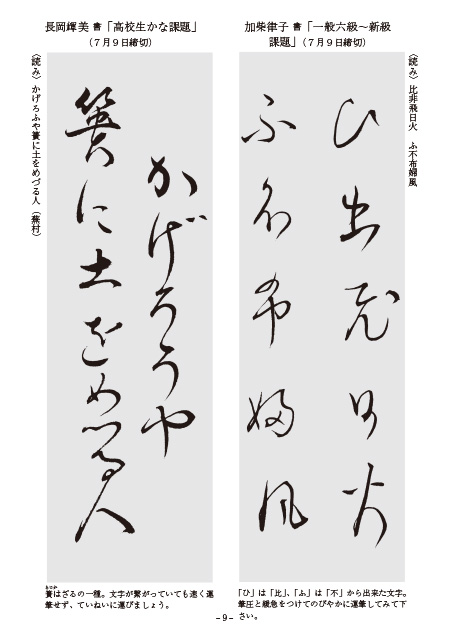 加柴律子 書「一般六級～新級
課題」(7月9日締切)
（読み）比非飛日火　ふ不布婦風
ひ非飛日火
ふ不布婦風
「ひ」は「比」、「ふ」は「不」から出来た文字。
筆圧と緩急をつけてのびやかに運筆してみて下
さい。
長岡輝美 書「高校生かな課題」
(7月9日締切)
（読み）かげろふや簣に土をめづる人（蕪村）
かげろうや
簣に土をめづる人
あじか
簣はざるの一種。文字が繋がっていても速く運
筆せず、ていねいに運びましょう。
- 9 -